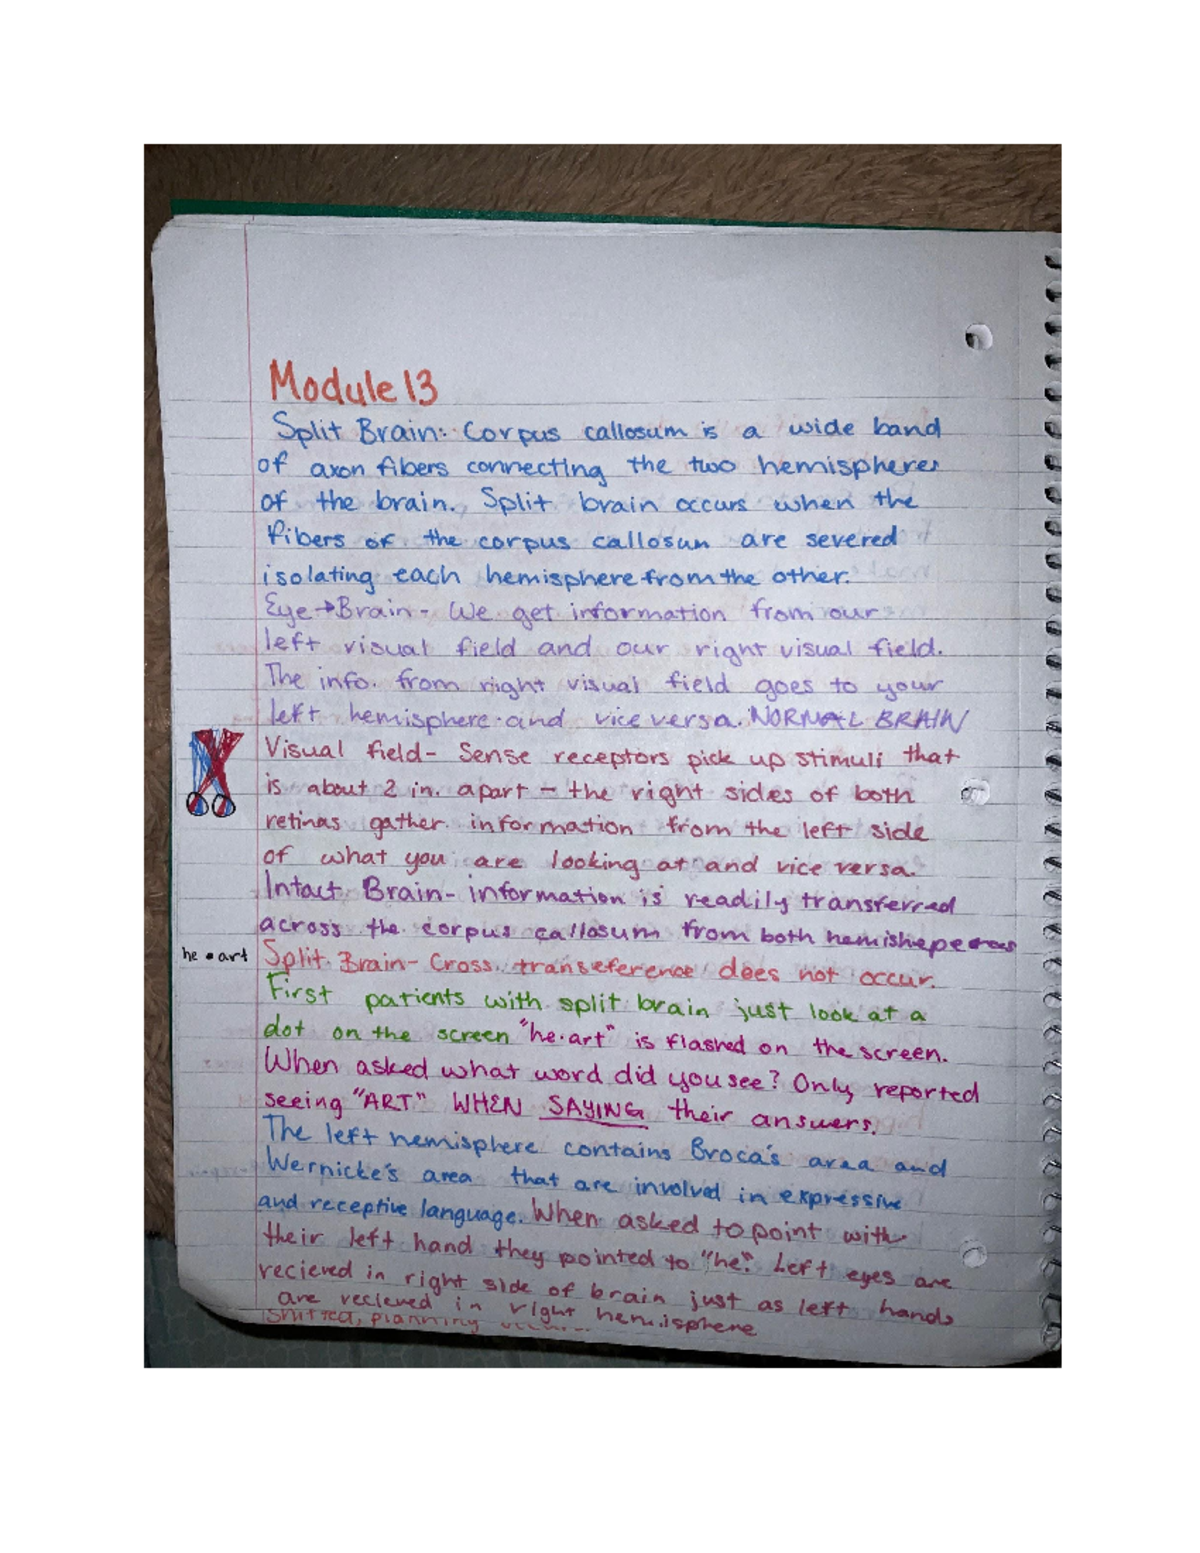 Module 13
Split Brain: Corpus callosum is a wide band
of axon fibers connecting the two hemispheres
of the brain. Split brain occurs when the
fibers of the corpus callosum are severed
isolating each hemisphere from the other.
Eye→Brain - We get information from our
left visual field and our right visual field.
The info. from right visual field goes to your
left hemisphere and vice versa. NORMAL BRAIN
Visual field- Sense receptors pick up stimuli that
is about 2 in. apart - the right sides of both
retinas gather information from the left side
of what you are looking at and vice versa.
Intact Brain- information is readily transferred
across the corpus callosum from both
he • art
Split Brain- Cross transeference does not occur.
First patients with split brain just look at a
dot on the screen "he·art" is flashed on the screen.
When asked what word did you see? Only reported
seeing "ART" WHEN SAYING their answers.
The left hemisphere contains Broca's area and
Wernicke's area that are involved in expressive
and receptive language. When asked to point with
their left hand they pointed to "he". Left eyes are
recieved in right side of brain just as left hands
are recieved in right hemisphere
shifted, planning